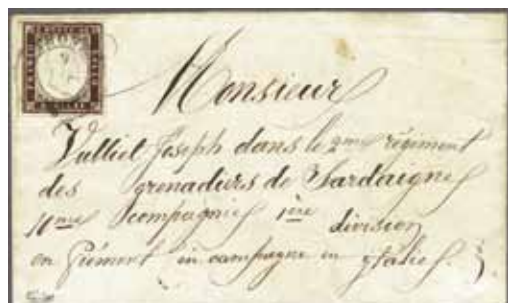 Monsieur
Vulliet Joseph dans le 2me régiment
des grenadiers de Sardaigne
compagnie 1ère division
en Piémont in campagne en Italie